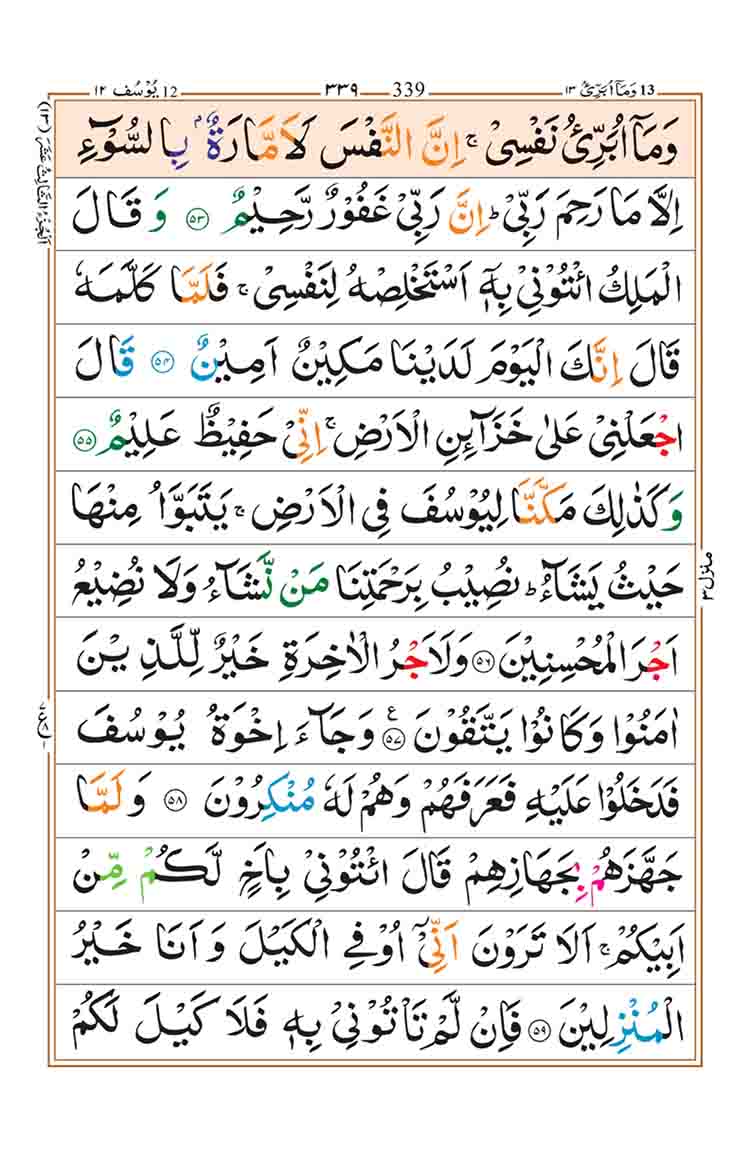 13 وَمَاۤ اُبَرِّئُ ١٣ 339 ٣٣٩ 12 يُوْسُف ١٢
وَمَاۤ اُبَرِّئُ نَفْسِىْ ۚ اِنَّ النَّفْسَ لَاَمَّارَةٌۢ بِالسُّوْٓءِ
اِلَّا مَا رَحِمَ رَبِّىْ ؕ اِنَّ رَبِّىْ غَفُوْرٌ رَّحِيْمٌ ۝٥٣ وَقَالَ
الْمَلِكُ ائْتُوْنِىْ بِهٖۤ اَسْتَخْلِصْهُ لِنَفْسِىْ ۚ فَلَمَّا كَلَّمَهٗ
قَالَ اِنَّكَ الْيَوْمَ لَدَيْنَا مَكِيْنٌ اَمِيْنٌ ۝٥٤ قَالَ
اجْعَلْنِىْ عَلٰى خَزَآئِنِ الْاَرْضِ ۚ اِنِّىْ حَفِيْظٌ عَلِيْمٌ ۝٥٥
وَكَذٰلِكَ مَكَّنَّا لِيُوْسُفَ فِى الْاَرْضِ ۚ يَتَبَوَّاُ مِنْهَا
حَيْثُ يَشَآءُ ؕ نُصِيْبُ بِرَحْمَتِنَا مَنْ نَّشَآءُ وَلَا نُضِيْعُ
اَجْرَ الْمُحْسِنِيْنَ ۝٥٦ وَلَاَجْرُ الْاٰخِرَةِ خَيْرٌ لِّلَّذِيْنَ
اٰمَنُوْا وَكَانُوْا يَتَّقُوْنَ ۝٥٧ۧ وَجَآءَ اِخْوَةُ يُوْسُفَ
فَدَخَلُوْا عَلَيْهِ فَعَرَفَهُمْ وَهُمْ لَهٗ مُنْكِرُوْنَ ۝٥٨ وَلَمَّا
جَهَّزَهُمْ بِجَهَازِهِمْ قَالَ ائْتُوْنِىْ بِاَخٍ لَّكُمْ مِّنْ
اَبِيْكُمْ ۚ اَلَا تَرَوْنَ اَنِّىْۤ اُوْفِى الْكَيْلَ وَاَنَا خَيْرُ
الْمُنْزِلِيْنَ ۝٥٩ فَاِنْ لَّمْ تَاْتُوْنِىْ بِهٖ فَلَا كَيْلَ لَكُمْ
اَلْجُزْءُ الثَّالِثُ عَشَرَ (١٣)
منزل ٣